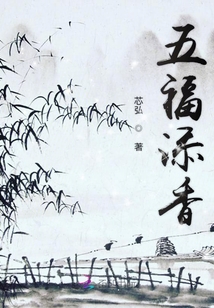 五福添香
芯弘
著